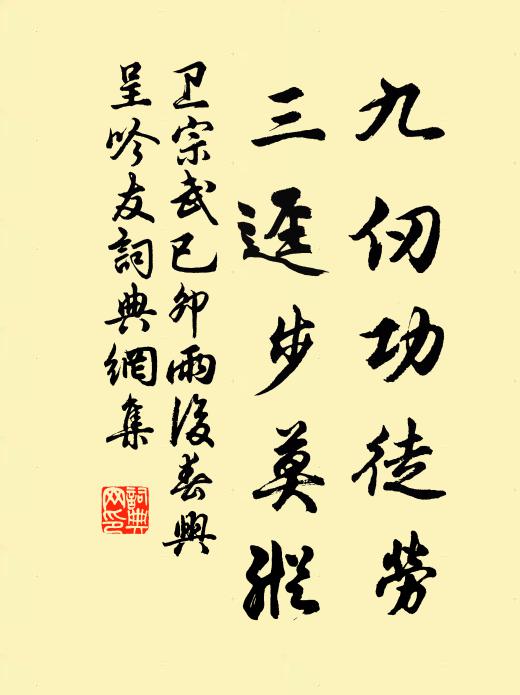 九仞功徒勞
三逕步莫縱
卫宗武己卯雨後春興
呈吟友詞典網集
詞典
网印